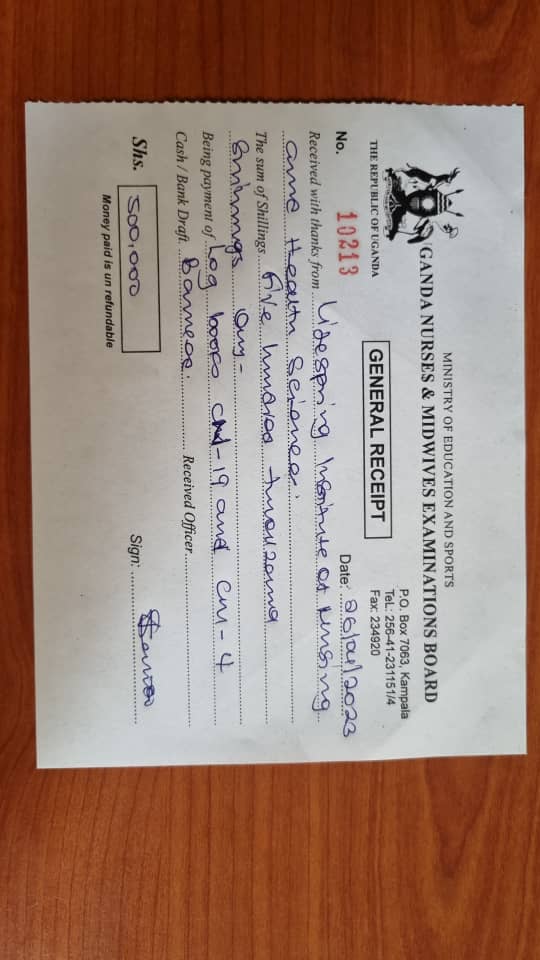 MINISTRY OF EDUCATION AND SPORTS
UGANDA NURSES & MIDWIVES EXAMINATIONS BOARD
THE REPUBLIC OF UGANDA
P.O. Box 7063, Kampala
Tel: 256-41-231151/4
Fax: 234920
GENERAL RECEIPT
No. 10213 Date: 26/04/2023
Received with thanks from Lifespring Institute of Nursing
and Health Science.
The sum of Shillings Five hundred thousand
Shillings only-
Being payment of Log books CN-19 and CM-4
Cash / Bank Draft. Received Officer
Shs. 500,000 Sign:
Money paid is un refundable